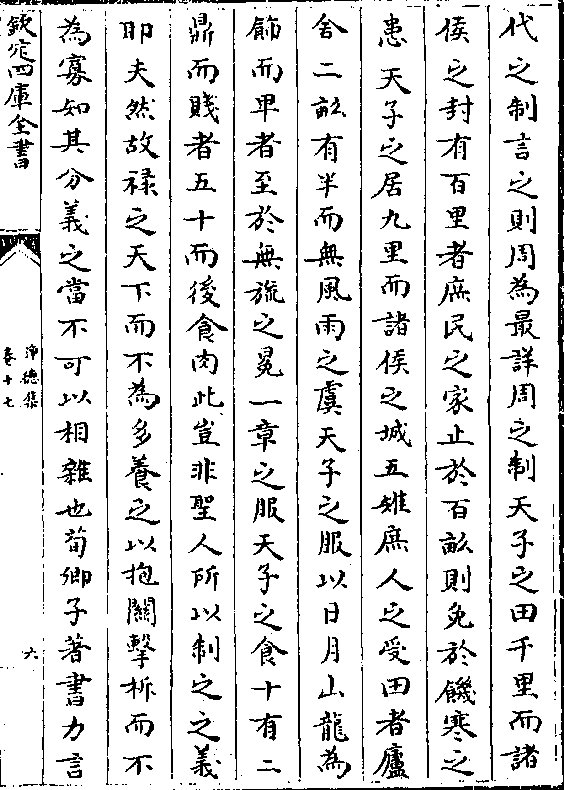 代之制言之則周為最詳周之制天子之田千里而諸
侯之封有百里者庶民之家止於百畝則免於饑寒之
患天子之居九里而諸侯之城五雉庶人之受田者廬
舍二畝有半而無風雨之虞天子之服以日月山龍為
飾而卑者至於無旒之冕一章之服天子之食十有二
鼎而賤者五十而後食肉此豈非聖人所以制之之義
耶夫然故祿之天下而不為多養之以抱關擊柝而不
為寡如其分義之當不可以相雜也荀卿子著書力言
欽定四庫全書
淨德集
卷十七
六